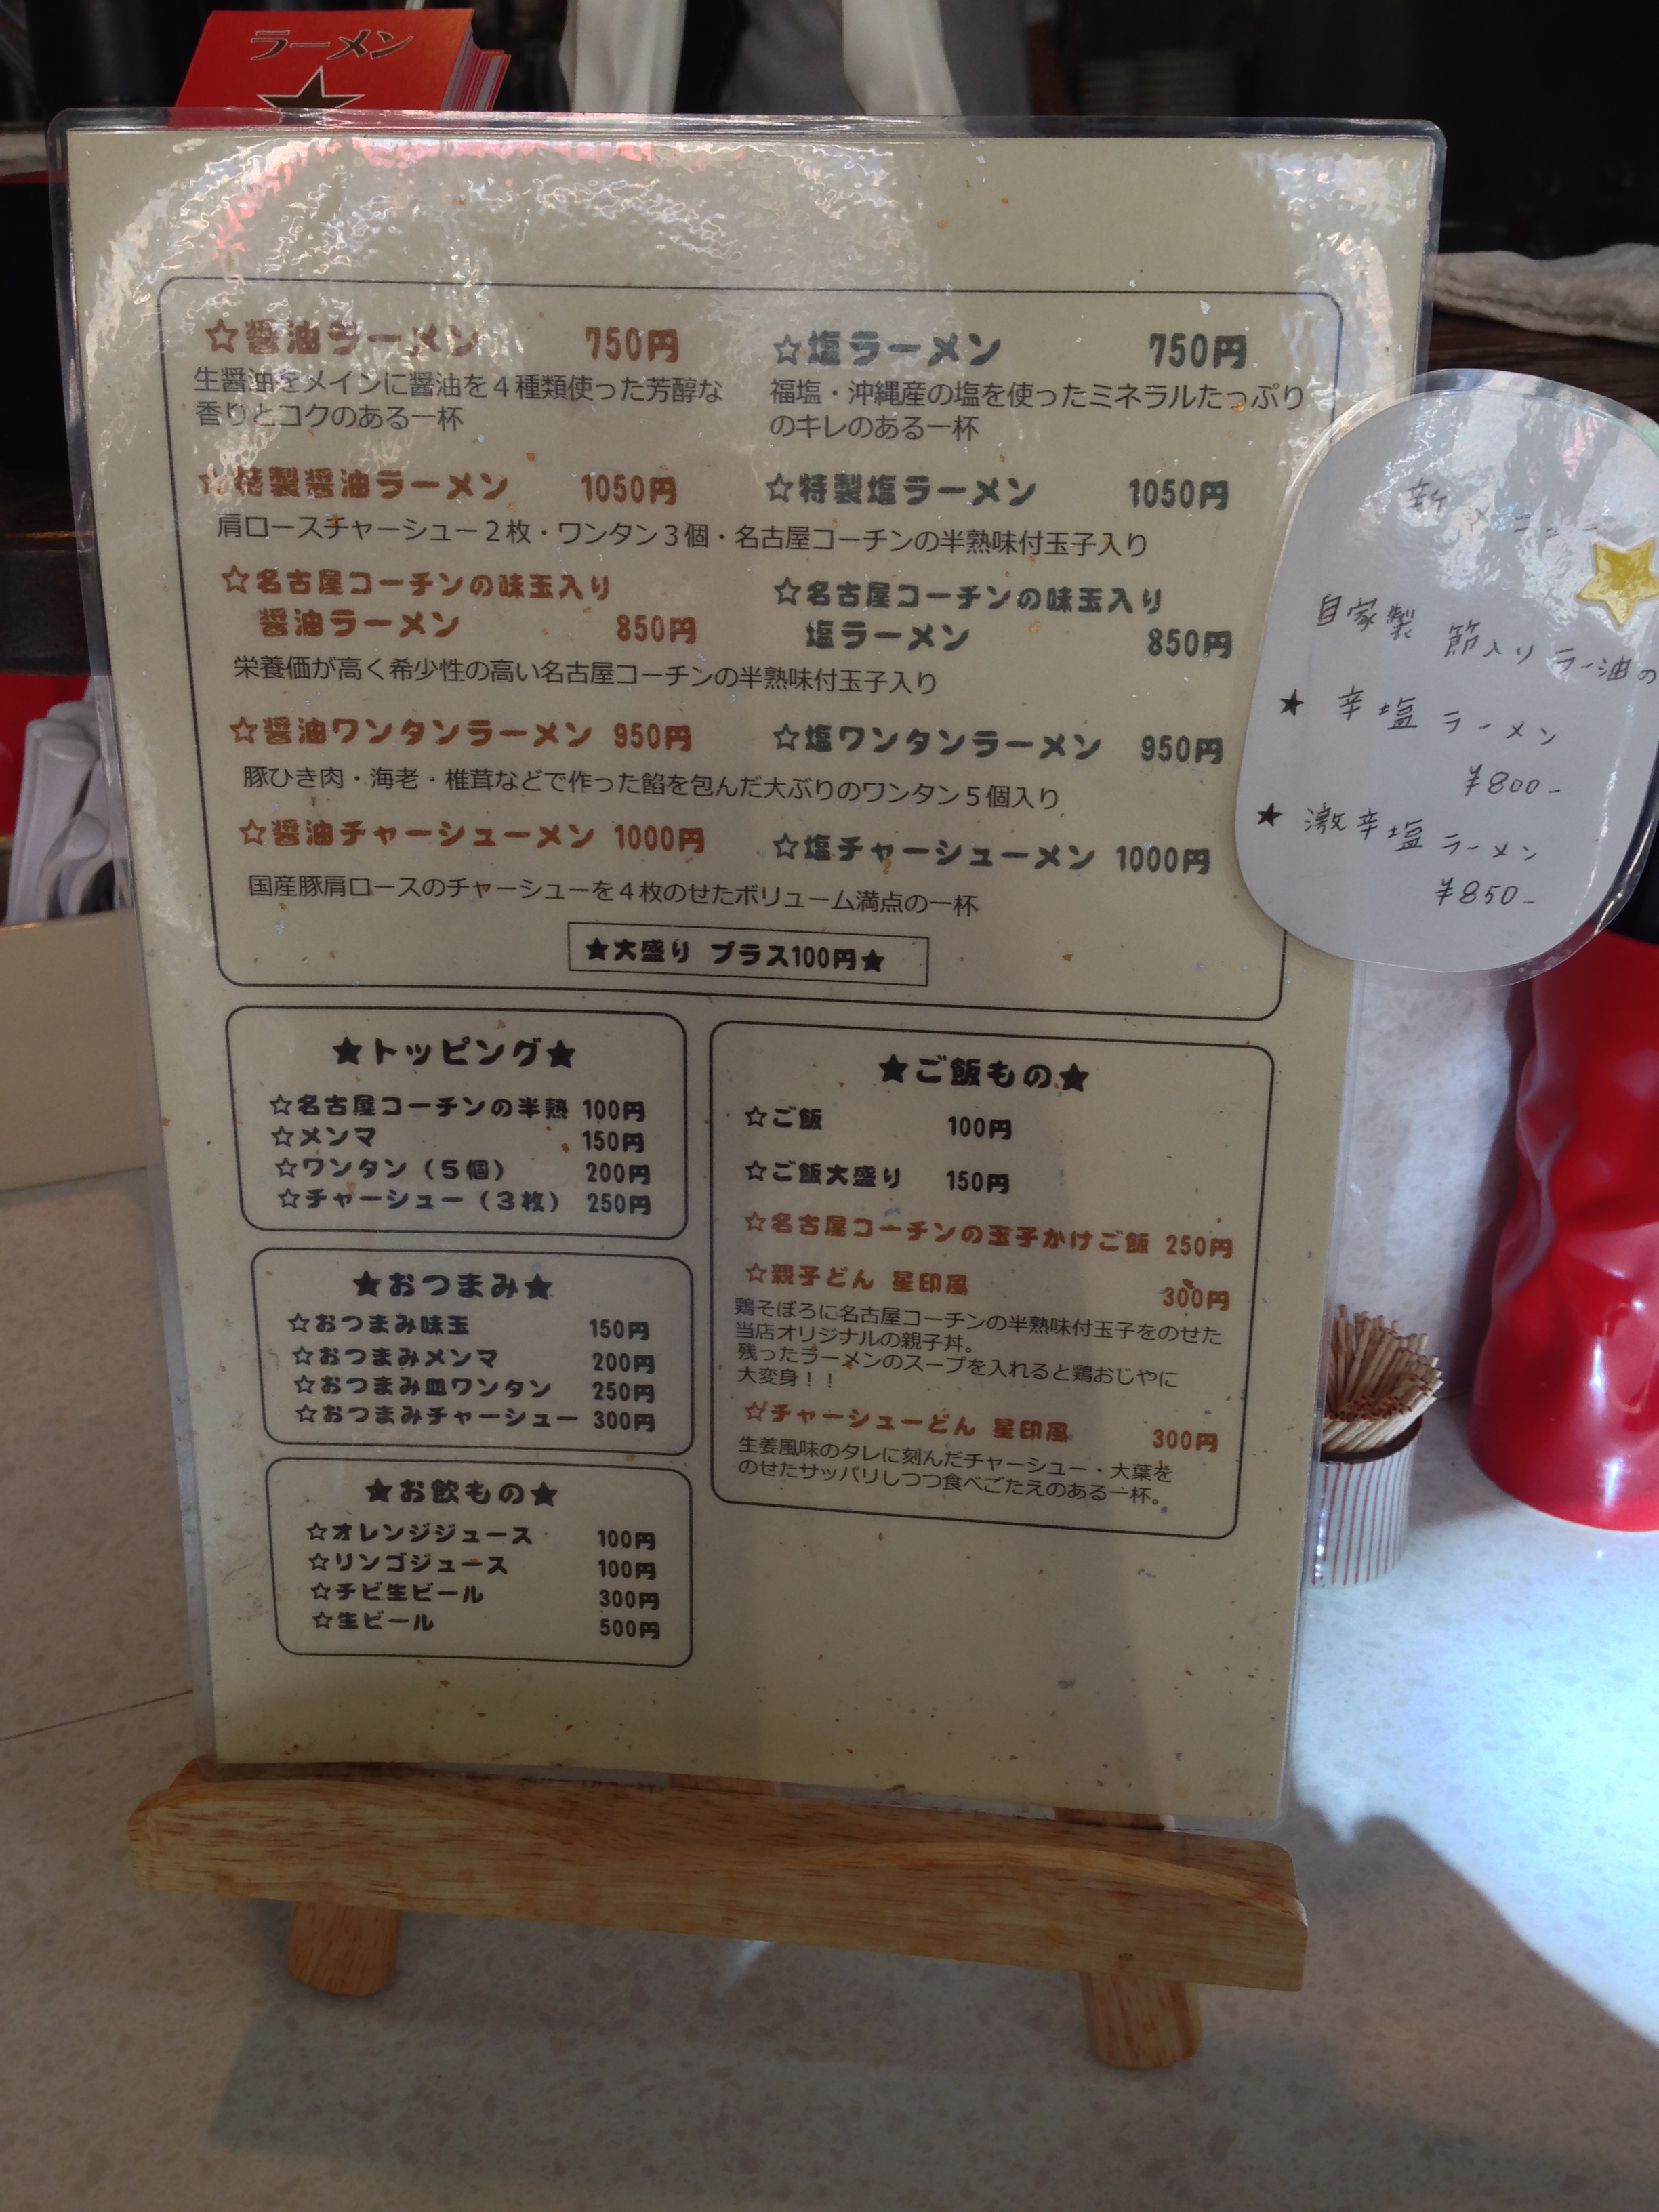 ラーメン
☆醤油ラーメン 750円
生醤油をメインに醤油を４種類使った芳醇な
香りとコクのある一杯
☆塩ラーメン 750円
福塩・沖縄産の塩を使ったミネラルたっぷり
のキレのある一杯
☆特製醤油ラーメン 1050円
☆特製塩ラーメン 1050円
肩ロースチャーシュー２枚・ワンタン３個・名古屋コーチンの半熟味付玉子入り
☆名古屋コーチンの味玉入り
醤油ラーメン 850円
☆名古屋コーチンの味玉入り
塩ラーメン 850円
栄養価が高く希少性の高い名古屋コーチンの半熟味付玉子入り
☆醤油ワンタンラーメン 950円
☆塩ワンタンラーメン 950円
豚ひき肉・海老・椎茸などで作った餡を包んだ大ぶりのワンタン５個入り
☆醤油チャーシューメン 1000円
☆塩チャーシューメン 1000円
国産豚肩ロースのチャーシューを４枚のせたボリューム満点の一杯
★大盛り プラス100円★
★トッピング★
☆名古屋コーチンの半熟 100円
☆メンマ 150円
☆ワンタン（５個） 200円
☆チャーシュー（３枚） 250円
★おつまみ★
☆おつまみ味玉 150円
☆おつまみメンマ 200円
☆おつまみ皿ワンタン 250円
☆おつまみチャーシュー 300円
★お飲もの★
☆オレンジジュース 100円
☆リンゴジュース 100円
☆チビ生ビール 300円
☆生ビール 500円
★ご飯もの★
☆ご飯 100円
☆ご飯大盛り 150円
☆名古屋コーチンの玉子かけご飯 250円
☆親子どん 星印風 300円
鶏そぼろに名古屋コーチンの半熟味付玉子をのせた
当店オリジナルの親子丼。
残ったラーメンのスープを入れると鶏おじやに
大変身！！
☆チャーシューどん 星印風 300円
生姜風味のタレに刻んだチャーシュー・大葉を
のせたサッパリしつつ食べごたえのある一杯。
新メニュー
自家製 節入りラー油の
★ 辛塩ラーメン
¥800-
★ 激辛塩ラーメン
¥850-